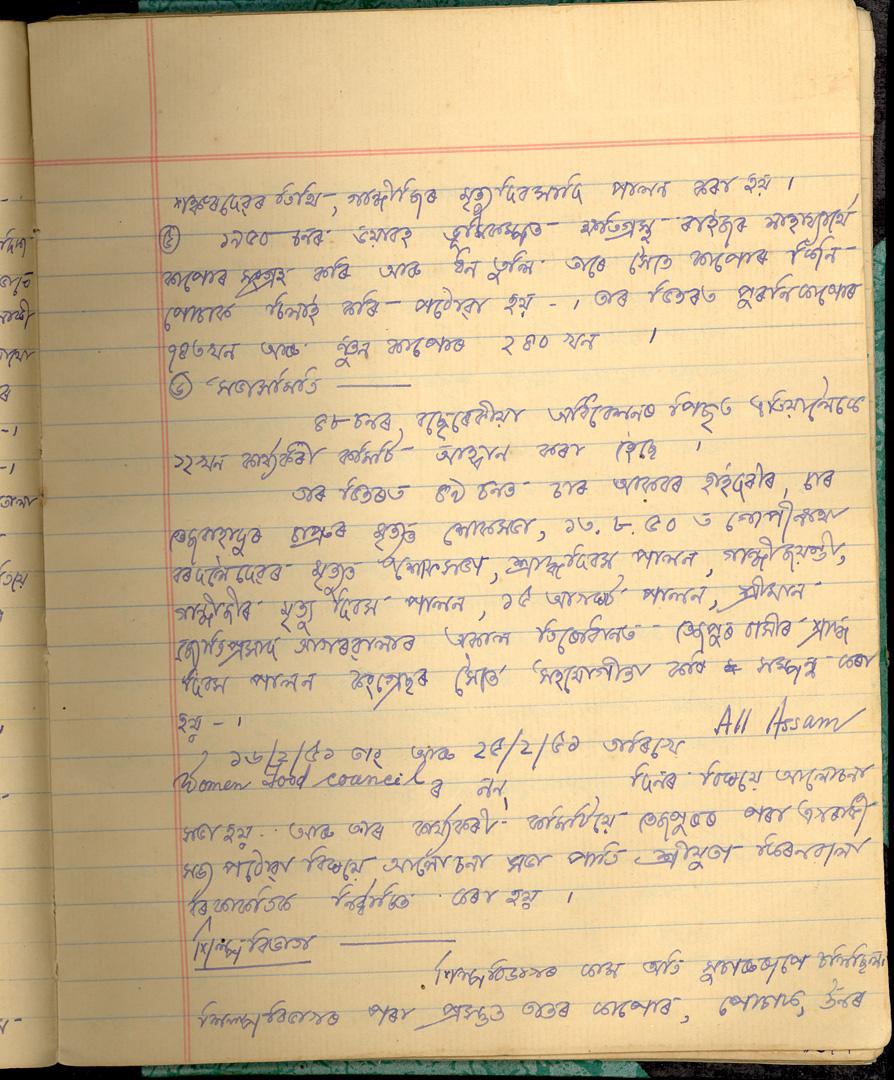 শঙ্কৰদেৱৰ তিথি, গান্ধীজিৰ মৃত্যু দিবসাদি পালন কৰা হয় ।
৫ ১৯৫০ চনৰ ভয়াবহ ভূমিকম্পত ক্ষতিগ্ৰস্থ ৰাইজৰ সাহায্যাৰ্থে
কাপোৰ সংগ্ৰহ কৰি আৰু ধন তুলি তাৰে সৈতে কাপোৰ কিনি
পোচাক চিলাই কৰি পঠোৱা হয় - । তাৰ ভিতৰত পুৰণি কাপোৰ
৭৪৩ খন আৰু নতুন কাপোৰ ২৪০ খন ।
৬ সভাসমিতি ———
৪৮ চনৰ বছেৰেকীয়া অধিবেশনৰ পিছত এতিয়ালৈকে
১২ খন কাৰ্য্যকৰী কমিটি আহ্বান কৰা হৈছে ।
তাৰ ভিতৰত ৪৯ চনত চাৰ আকবৰ হাইদৰীৰ, চাৰ
তেজবাহাদুৰ চাপ্ৰুৰ মৃত্যুত শোকসভা, ১৩. ৮. ৫০ ত গোপীনাথ
বৰদলৈদেৱৰ মৃত্যুত শোকসভা, শ্ৰাদ্ধদিবস পালন, গান্ধীজয়ন্তী,
গান্ধীজীৰ মৃত্যু দিবস পালন, ১৫ আগষ্ট পালন, শ্ৰীমান
জ্যোতিপ্ৰসাদ আগৰৱালাৰ অকাল তিৰোধানত তেজপুৰ বাসীৰ শ্ৰাদ্ধ
দিবস পালন কংগ্ৰেছৰ সৈতে সহযোগীতা কৰি সম্পন্ন কৰা
হয় - ।
১৬/২/৫১ তাং আৰু ২৫/২/৫১ তাৰিখে All Assam
Women Food Council ৰ দিনৰ বিষয়ে আলোচনা
সভা হয়. আৰু তাৰ কাৰ্য্যকৰী কমিটিয়ে তেজপুৰৰ পৰা এগৰাকী
সভ্য পঠোৱা বিষয়ে আলোচনা সভা পাতি শ্ৰীযুতা কিৰনবালা
নিৰ্ব্বাচিত কৰা হয় ।
শিল্প বিভাগ ———
শিল্পবিভাগৰ কাম অতি সুচাৰুৰূপে চলিছিল
শিল্প বিভাগৰ পৰা প্ৰস্তুত তাঁতৰ কাপোৰ, পোচাক, উনৰ